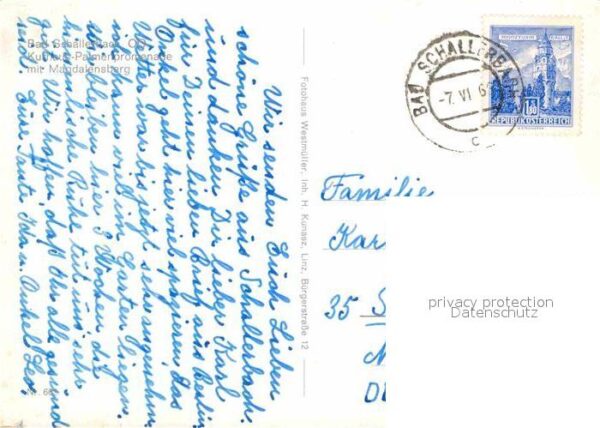 Bad Schallerbach, OÖ.
Kurhaus-Palmenpromenade
mit Magdalensberg
Wir senden Euch Lieben
schöne Grüße aus Schallerbach.
und danken Dir lieber Karl
für Deinen lieben Brief aus Berlin,
Onkel geht hier viel spazieren. Das
Wetter war bis jetzt sehr angenehm
ich will im Garten liegen.
wir bleiben hier 3 Wochen die
herrliche Ruhe tut uns sehr
gut. Wir hoffen, daß Ihr alle gesund
seid. Eure Tante Ida u. Onkel Leo.
Fotohaus Westmüller, Inh. H. Kunasz, Linz, Bürgerstraße 12
BAD SCHALLERBACH
-7. VI. 6
c
1.80
REPUBLIK ÖSTERREICH
Familie
Kar
35 S
privacy protection
Datenschutz